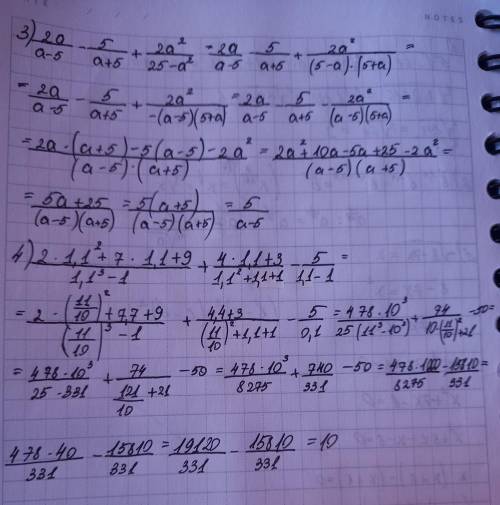 NOTES
3) 2a/(a-5) - 5/(a+5) + 2a²/(25-a²) = 2a/(a-5) - 5/(a+5) + 2a²/((5-a)·(5+a)) =
= 2a/(a-5) - 5/(a+5) + 2a²/(-(a-5)(5+a)) = 2a/(a-5) - 5/(a+5) - 2a²/((a-5)(5+a)) =
= (2a·(a+5)-5(a-5)-2a²)/((a-5)·(a+5)) = (2a²+10a-5a+25-2a²)/((a-5)(a+5)) =
= (5a+25)/((a-5)(a+5)) = 5(a+5)/((a-5)(a+5)) = 5/(a-5)
4) (2·1,1²+7·1,1+9)/(1,1³-1) + (4·1,1+3)/(1,1²+1,1+1) - 5/(1,1-1) =
= (2·(11/10)²+7,7+9)/((11/10)³-1) + (4,4+3)/((11/10)²+1,1+1) - 5/0,1 = 478·10³/(25(11³-10³)) + 74/(10·(11/10)²+21) -50=
= 478·10³/(25·331) + 74/(121/10+21) -50 = 478·10³/8275 + 740/331 -50 = 478·1000/8275 - 15810/331 =
478·40/331 - 15810/331 = 19120/331 - 15810/331 = 10